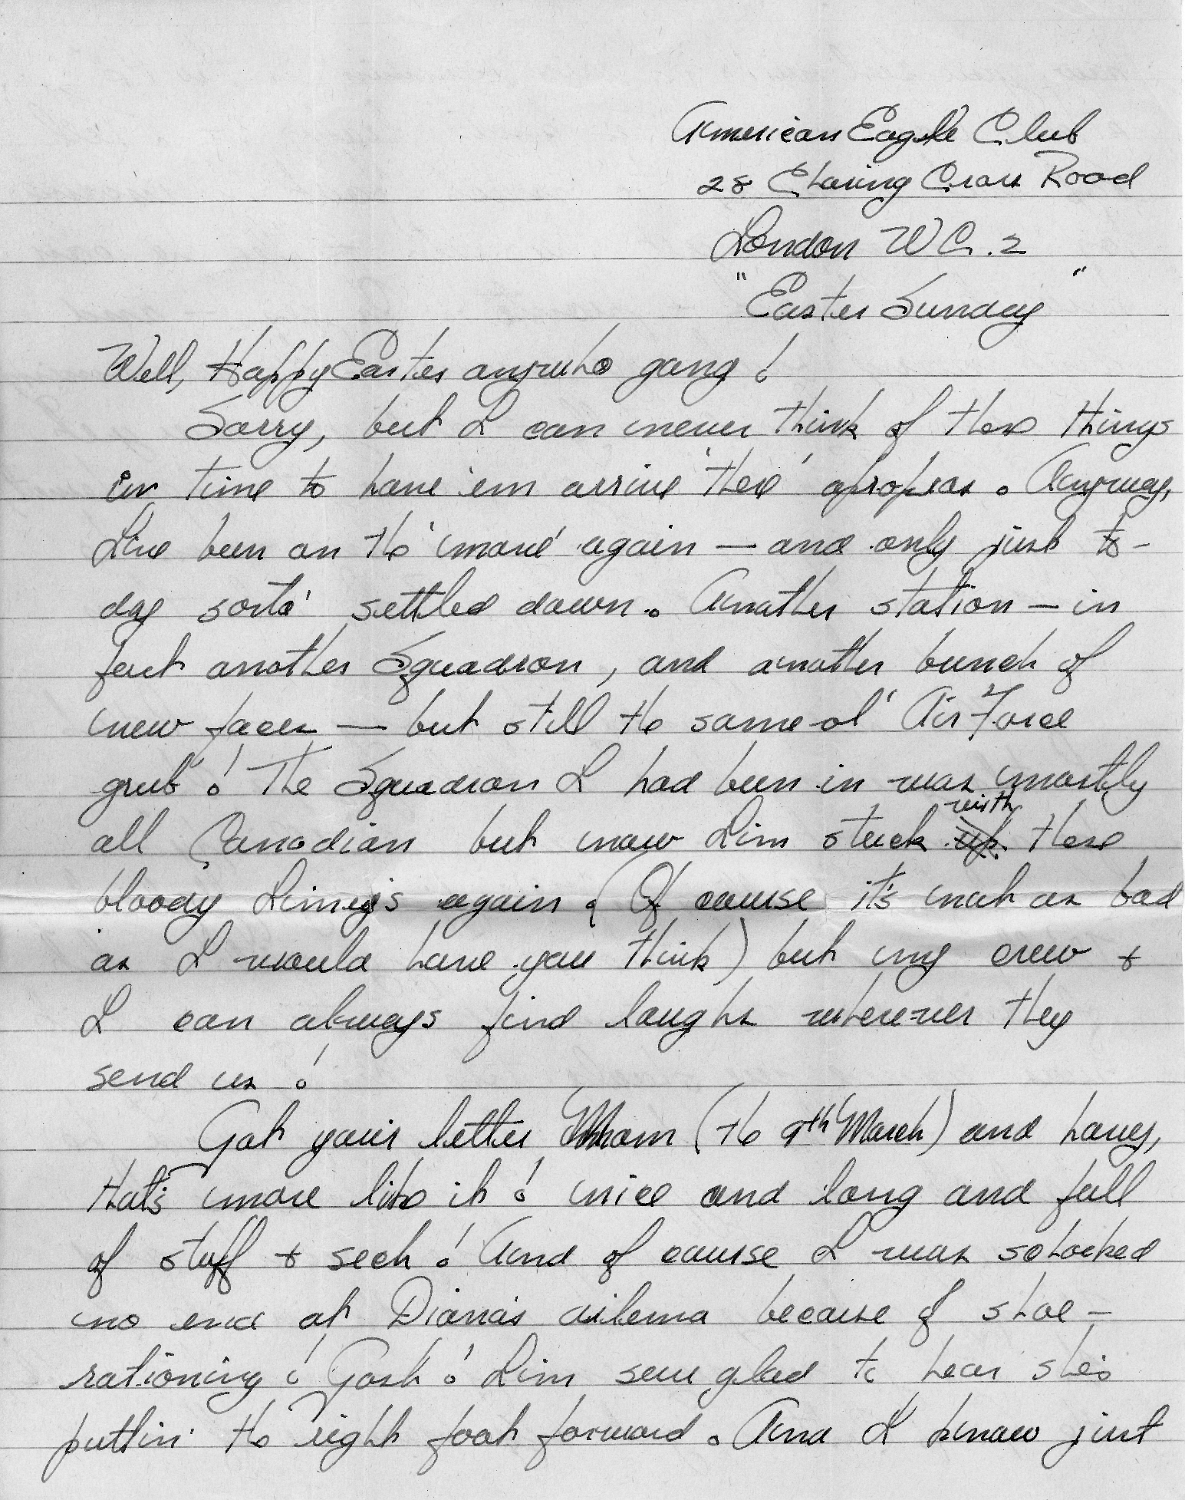 American Eagle Club
28 Charing Cross Road
London W C. 2
"Easter Sunday"
Well, Happy Easter anywho gang!
Sorry, but I can never think of these things
in time to have 'em arrive 'there' apropos. Anyway,
I've been on the 'move' again — and only just to-
day sorta' settled down. Another station — in
fact another Squadron, and another bunch of
new faces — but still the same ol' Air Force
grub'! The Squadron I had been in was mostly
all Canadian but now I'm stuck with up these
bloody Limey's again. (Of course it's not as bad
as I would have you think) but my crew &
I can always find laughs wherever they
send us!
Got your letter Mom (the 9th March) and hary,
that's more like it! nice and long and full
of stuff & sech! And of course I was schocked
no end at Diana's dilema because of shoe-
rationing! Gosh! I'm sure glad to hear she's
puttin' the right foot forward. And I know just